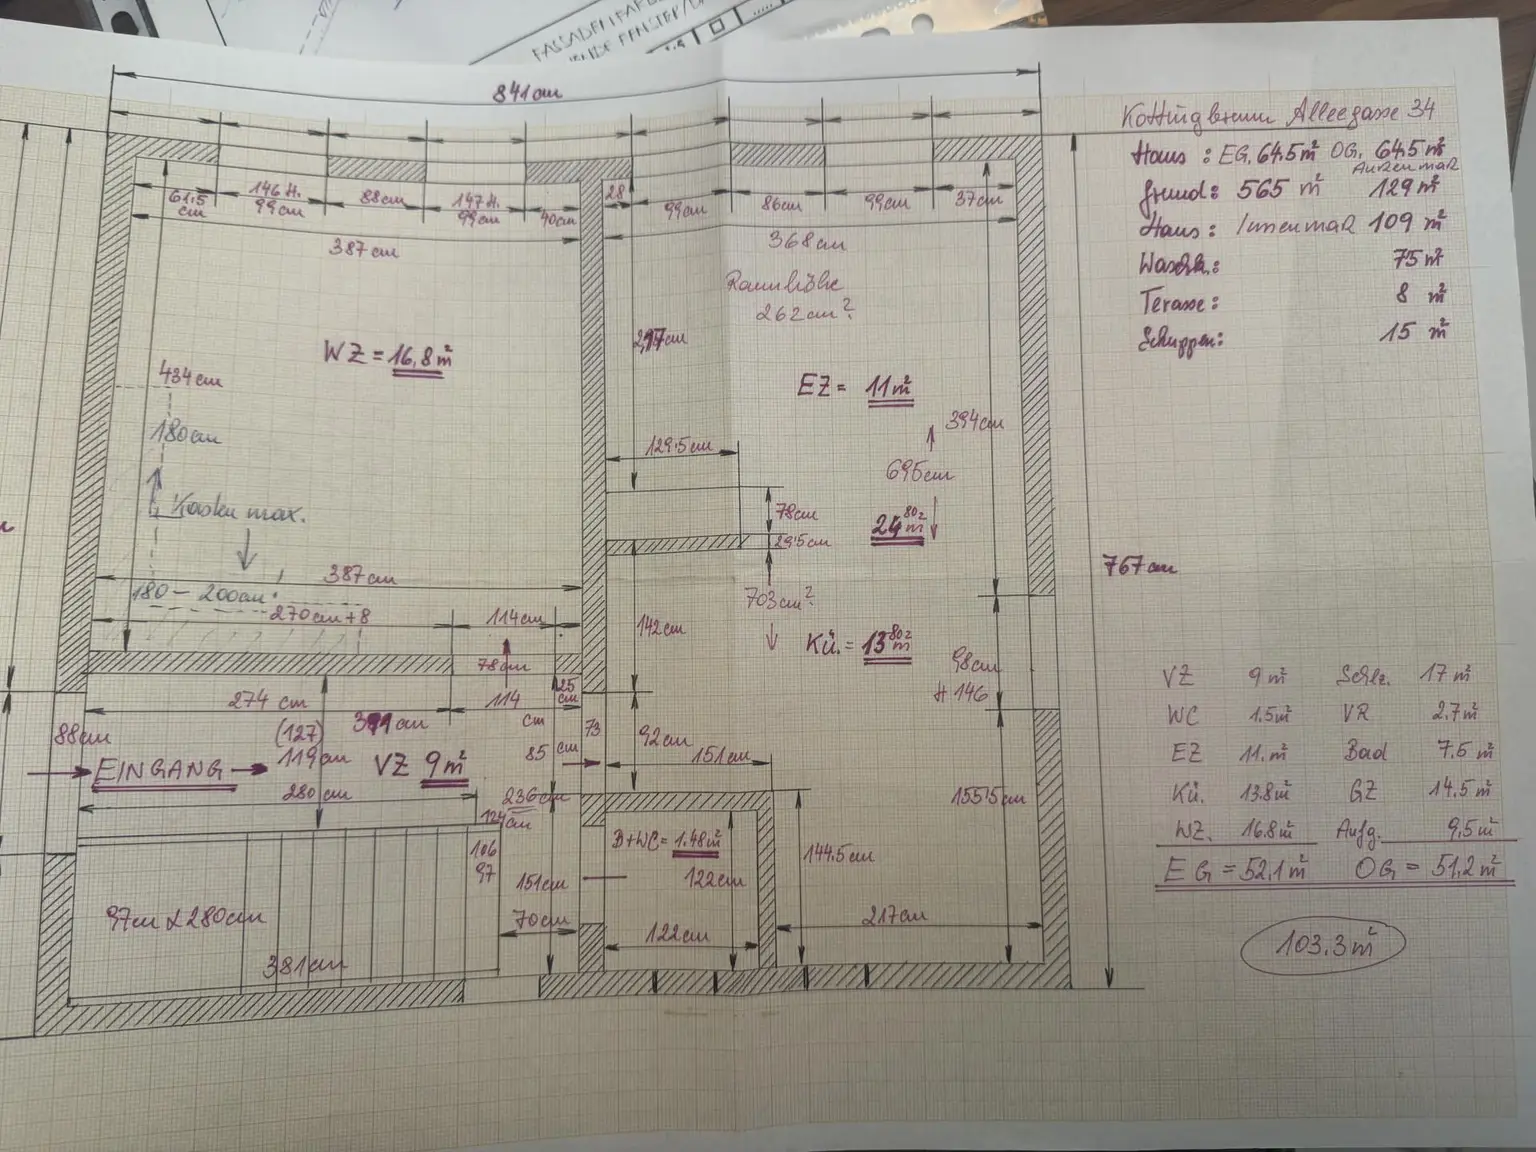 841 cm
Kottingbrunn Alleegasse 34
Haus: EG. 64.5 m² OG. 64.5 m²
Außenmaß
Grund: 565 m² 129 m²
Haus: Innenmaß 109 m²
75 m²
Terasse: 8 m²
Schuppen: 15 m²
61.5 cm
146 H. 99 cm
88 cm
147 H. 99 cm
40 cm
28
99 cm
86 cm
99 cm
37 cm
387 cm
368 cm
Raumhöhe
262 cm?
WZ = 16,8 m²
434 cm
180 cm
EZ = 11 m²
394 cm
129.5 cm
695 cm
78 cm
24 80z m²
29.5 cm
Kasten max.
387 cm
180 - 200 cm
270 cm + 8
114 cm
767 cm
703 cm?
142 cm
Kü. = 13 80z m²
98 cm
H 146
78 cm
25 cm
274 cm
114 cm
(127)
88 cm
119 cm
73
92 cm
85 cm
151 cm
EINGANG
VZ 9 m²
280 cm
236 cm
124 cm
155.5 cm
B+WC = 1.48 m²
106
97
144.5 cm
122 cm
151 cm
97 cm x 280 cm
70 cm
122 cm
217 cm
381 cm
VZ 9 m² Schlz. 17 m²
WC 1.5 m² VR 2.7 m²
EZ 11. m² Bad 7.5 m²
Kü. 13.8 m² GZ 14.5 m²
WZ. 16.8 m² Aufg. 9,5 m²
EG = 52,1 m² OG = 51,2 m²
103.3 m²